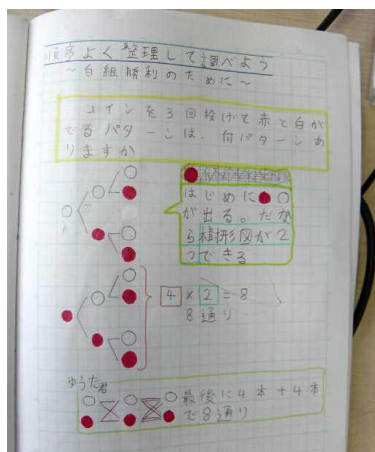 順序よく整理して調べよう
～白組勝利のために～
コインを3回投げて赤と白が
でるパターンは、何パターンあ
りますか
はじめに●○
が出る。だか
ら樹形図が2
つできる
4×2=8
8通り
ゆうた君
最後に4本+4本
で8通り